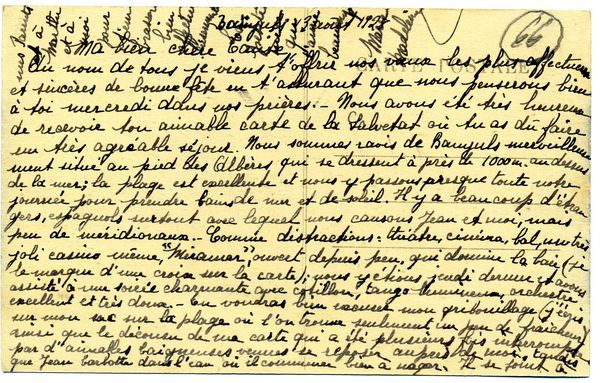 Banyuls 13 août 192
66
CARTE POSTALE
Ma bien chère Cousine
Au nom de tous je viens t'offrir nos vœux les plus affectueux
et sincères de bonne fête en t'assurant que nous penserons bien
à toi mercredi dans nos prières. - Nous avons été très heureux
de recevoir ton aimable carte de la Salvetat où tu as dû faire
un très agréable séjour. Nous sommes ravis de Banyuls merveilleuse
ment situé au pied des Albères, qui se dressent à près de 1000m. au dessus
de la mer; la plage est excellente et nous y passons presque toute notre
journée pour prendre bains de mer et de soleil. Il y a beaucoup d'étran
gers, espagnols surtout avec lesquel nous causons Jean et moi, mais
peu de méridionaux. - Comme distractions: théâtre, cinéma, bal, un très
joli casino même, "Miramar", ouvert depuis peu, qui domine la baie (je
le marque d'une croix sur la carte); nous y étions jeudi dernier et avons
assisté à une soirée charmante avec cotillon, tango lumineux, orchestre
excellent et très doux. - Tu voudras bien excuser mon gribouillage (j'écris
sur mon sac sur la plage où l'on trouve seulement un peu de fraîcheur)
ainsi que le décousu de ma carte qui a été plusieurs fois interrompue
par d'aimables baigneuses venues se reposer auprès de moi, tandis
que Jean barbotte dans l'eau où il commence bien à nager. Il se joint à